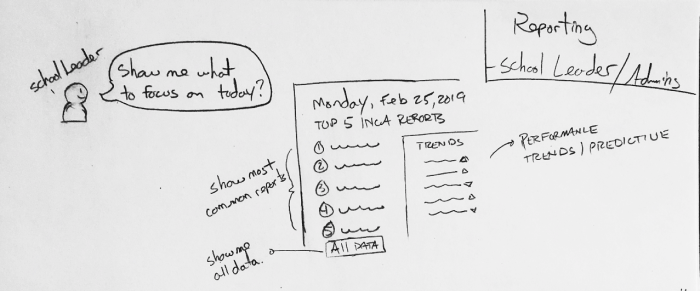 Reporting
- School Leader/Admins
School Leader
Show me what
to focus on today?
Monday, Feb 25, 2019
TOP 5 INCA REPORTS
1
2
3
4
5
All DATA
TRENDS
PERFORMANCE
TRENDS / PREDICTIVE
show most
common reports
show me
all data.